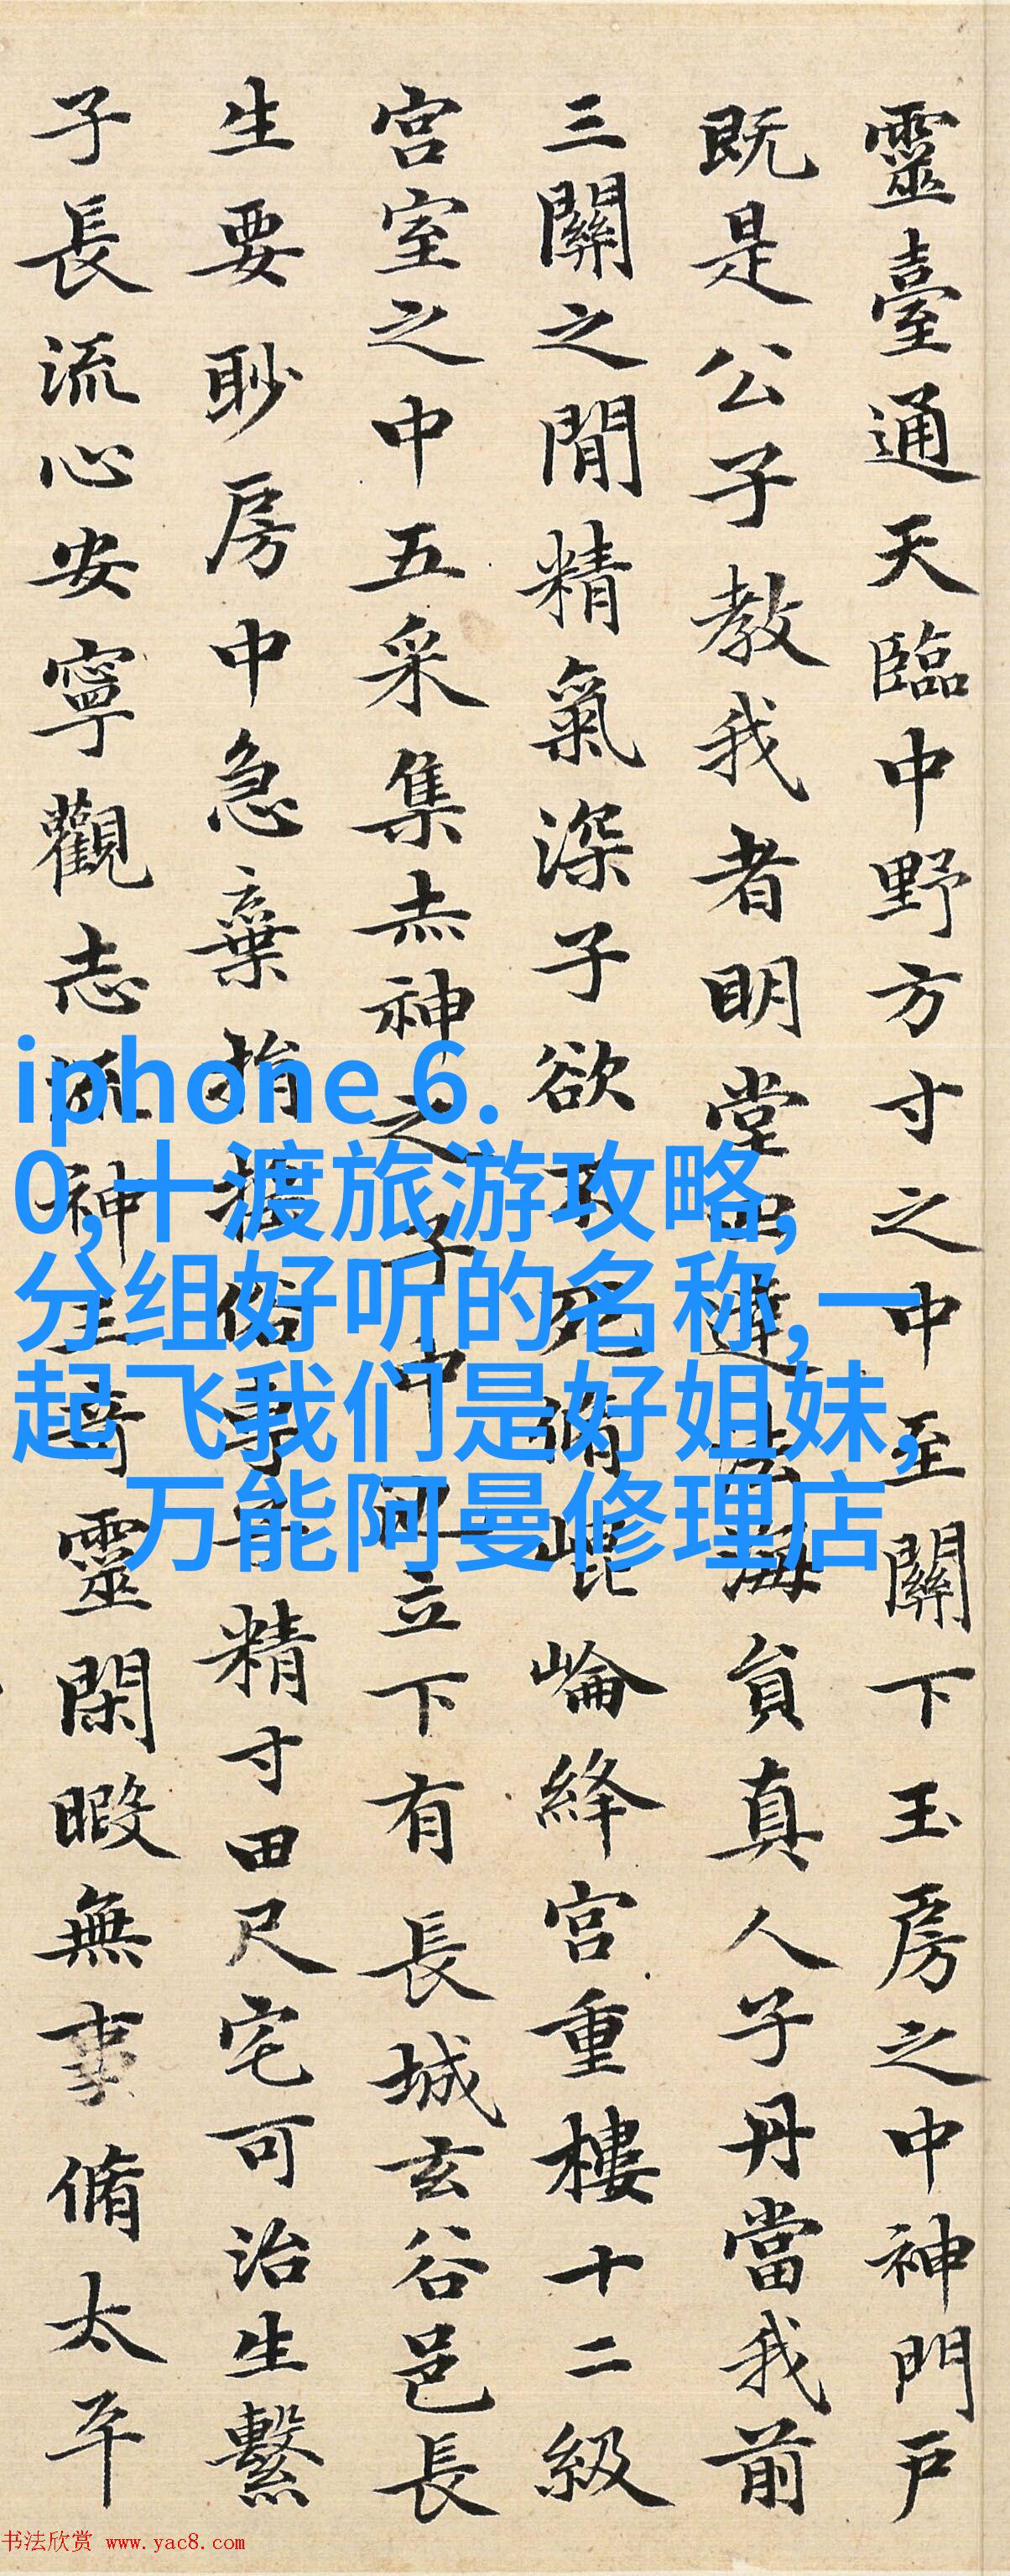 靈臺通天臨中野方寸之中至關下玉房之中神門戶
既是公子教我者明堂四達法海員真人子丹當我前
三關之閒精氣深子欲不死脩崐崘絳宮重樓十二級
宮室之中五采集赤神之子中池立下有長城玄谷邑長
生要眇房中急棄捐淫俗專子精寸田尺宅可治生繫
子長流心安寧觀志流神三奇靈閑暇無事脩太平
iphone 6.
0,十渡旅游攻略,
分组好听的名称,一
起飞我们是好姐妹,
万能阿曼修理店
书法欣赏 www.yac8.com